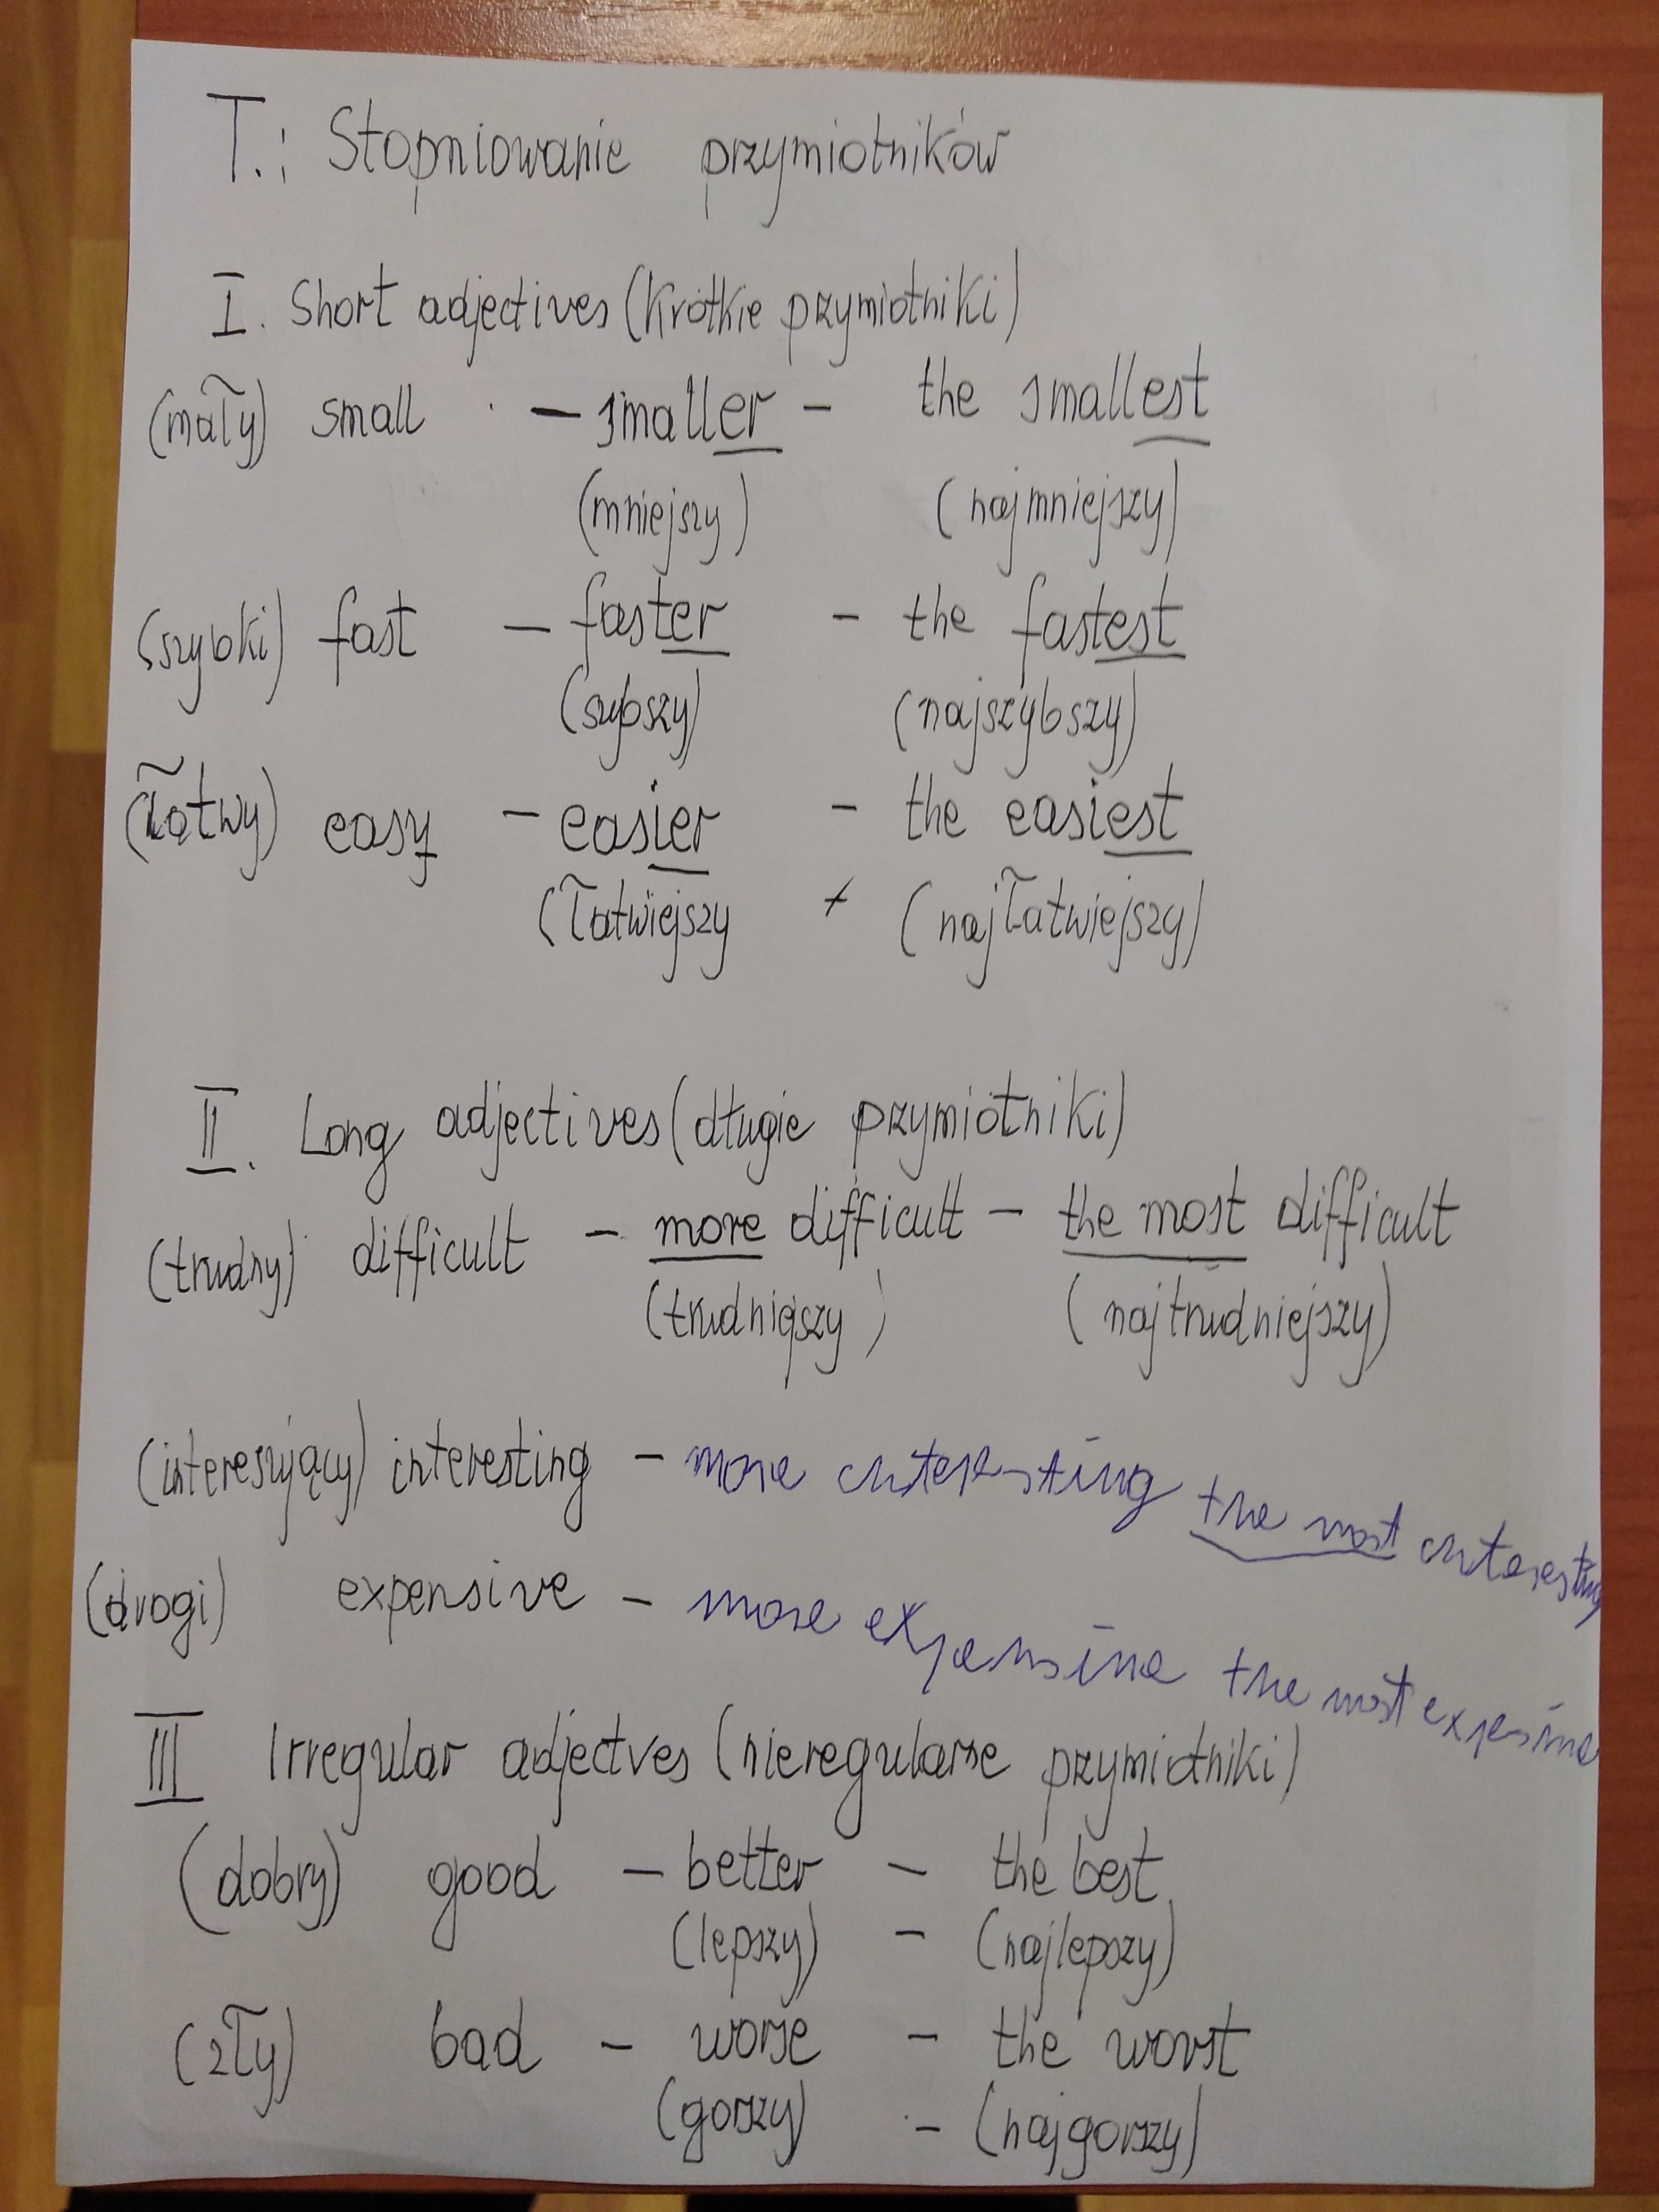 T.: Stopniowanie przymiotników
I. Short adjectives (krótkie przymiotniki)
(mały) small – smaller – the smallest
(mniejszy) (najmniejszy)
(szybki) fast – faster – the fastest
(szybszy) (najszybszy)
(łatwy) easy – easier – the easiest
(łatwiejszy + (najłatwiejszy)
II. Long adjectives (długie przymiotniki)
(trudny) difficult – more difficult – the most difficult
(trudniejszy) (najtrudniejszy)
(interesujący) interesting – more interesting the most interesting
(drogi) expensive – more expensive the most expensive
III Irregular adjectves (nieregularne przymiotniki)
(dobry) good – better – the best
(lepszy) – (najlepszy)
(zły) bad – worse – the worst
(gorszy) – (najgorszy)